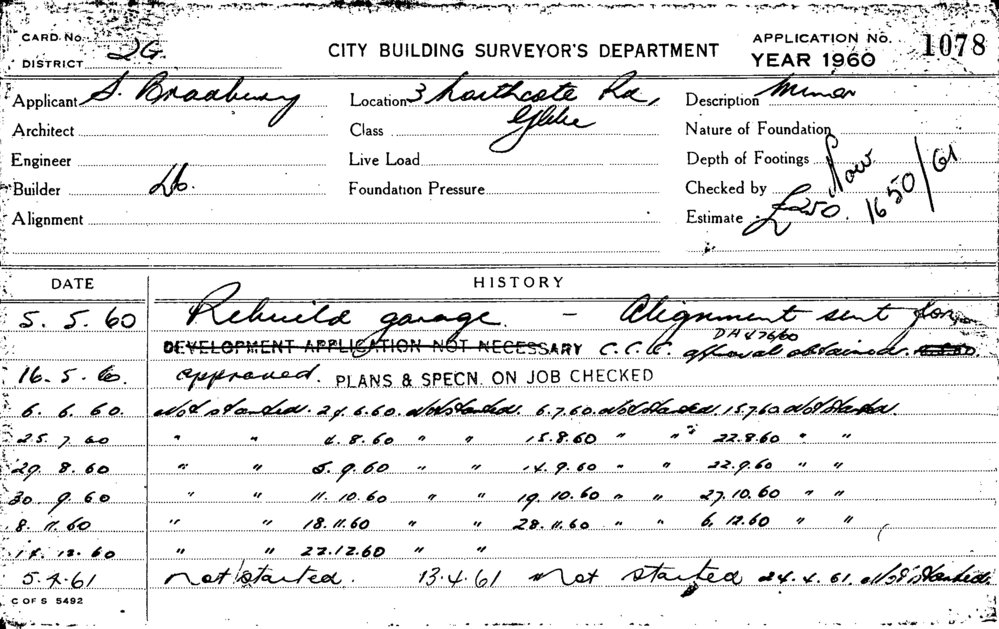 CARD. No. CITY BUILDING SURVEYOR'S DEPARTMENT APPLICATION No. 1078
DISTRICT 2G. YEAR 1960
Applicant S. Bradbury Location 3 Northcote Rd, Description Minor
Architect Class Glebe Nature of Foundation
Engineer Live Load Depth of Footings Now
Builder Do. Foundation Pressure Checked by 1650/61
Alignment Estimate £250.
DATE HISTORY
5. 5. 60 Rebuild garage. - Alignment sent for
DA 476/60
DEVELOPMENT APPLICATION NOT NECESSARY C.C.C. approval obtained.
16. 5. 60. approved. PLANS & SPECN. ON JOB CHECKED
6. 6. 60. Not started. 24.6.60. Not Started. 6.7.60. Not Started. 15.7.60 Not Started
25. 7. 60 " " 4. 8. 60 " " 15.8.60 " " 22.8.60 " "
29. 8. 60 " " 5. 9. 60 " " 14. 9. 60 " " 22.9.60 " "
30. 9. 60 " " 11. 10. 60 " " 19. 10. 60 " " 27.10.60 " "
8. 11. 60 " " 18.11.60 " " 28.11.60 " " 6. 12.60 " "
14. 12. 60 " " 22.12.60 " "
5.4.61 Not started. 13.4.61 Not started 24.4.61. Not Started
C OF S 5492